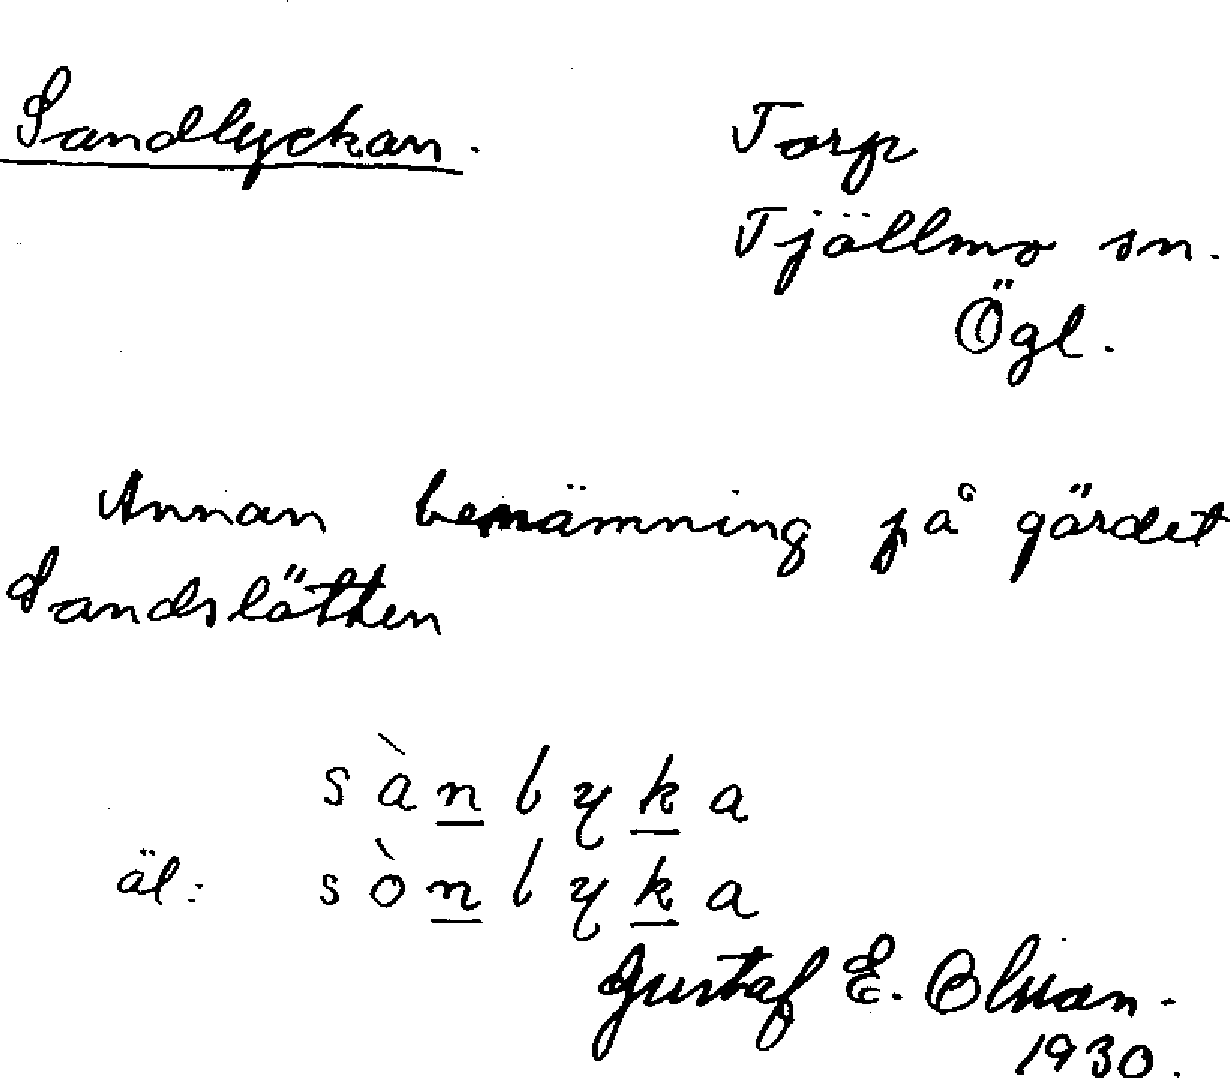 Sandlyckan.
Torp
Tjällmo sn.
Ögl.
Annan benämning på gärdet
Sandslätten
sànlyka
äl: sònlyka
Gustaf E. Olman.
1930.